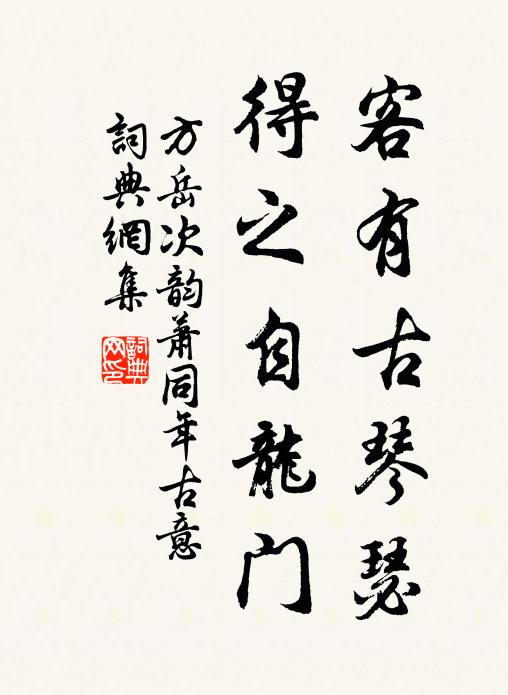 客有古琴瑟
得之自龍门
方岳次韵萧同年古意
詞典網集
詞典
网印